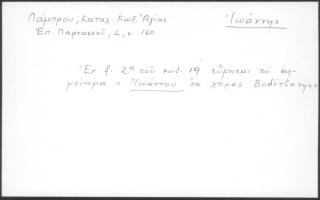 Λάμπρου, Καταλ. Κωδ. Ἁγίας
Ἐπ. Παρασκευῆς, 2, σ. 160
Ἰωάννης
Ἐν f. 2α τοῦ κωδ. 19 εὕρηται τὸ ση-
μείωμα « Ἰωάννου ἐκ χώρας